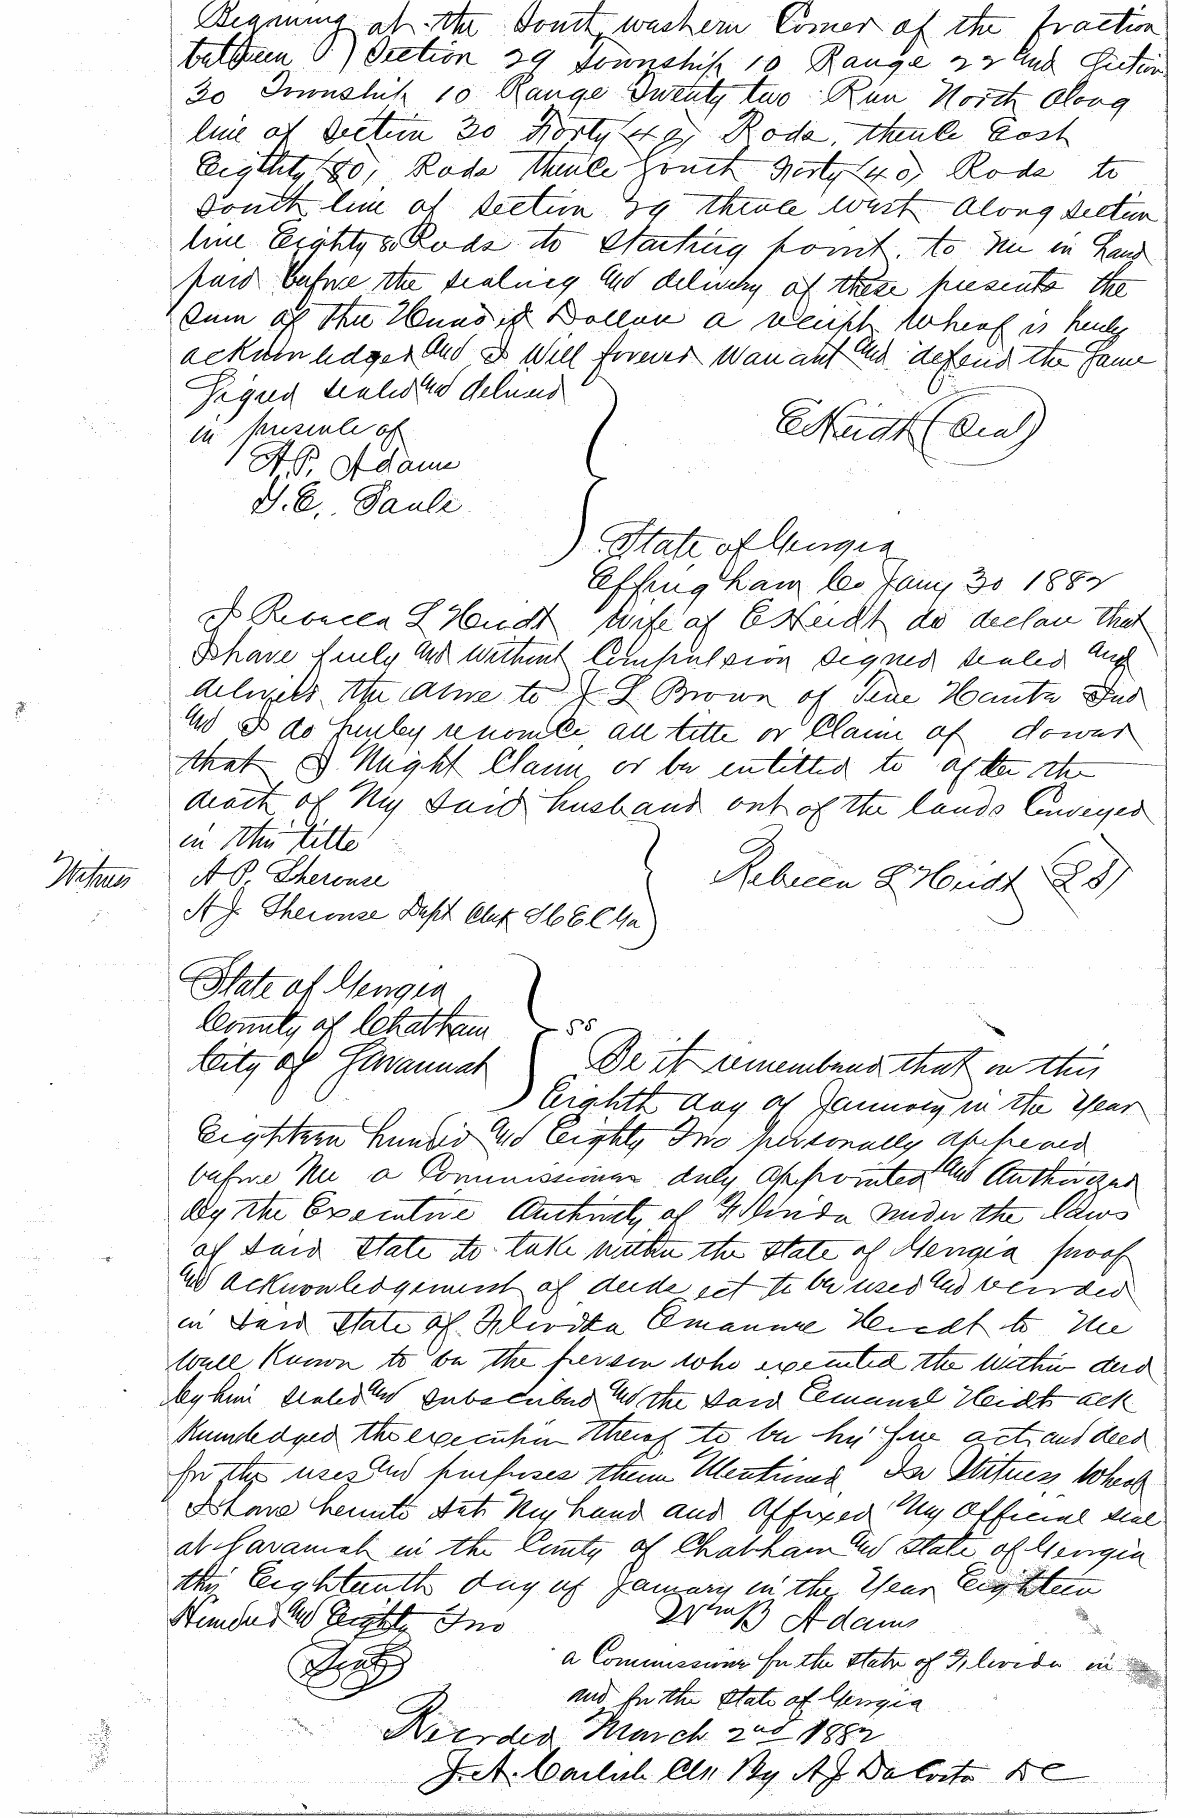 Begining at the South washern Corner of the fraction
between Section 29 Township 10 Range 22 and Section
30 Township 10 Range Twenty two Run North along
line of Section 30 Forty (40) Rods, thence East
Eighty (80) Rods thence South Forty (40) Rods to
South line of Section 29 thence west along section
line Eighty 80 Rods to starting point. to me in hand
paid before the sealing and delivery of these presents the
sum of three Hundred Dollars a receipt whereof is hereby
acknowledged and I will forever warrant and defend the same
Signed sealed and delivered
in presence of
E Heidt (Seal)
A.P. Adams
State of Georgia
Effingham Co Jany 30 1882
I Rebecca L Heidt wife of E Heidt do declare that
I have freely and without Compulsion signed sealed and
delivered the above to J L Brown of Terre Hauta Ind
and I do hereby renounce all title or Claim of dower
that I might Claim or be entitled to after the
death of My said husband out of the lands Conveyed
in this title
Witness
A P. Sherouse
Rebecca L Heidt (L S)
A J. Sherouse Dept Clerk
State of Georgia
County of Chatham
ss
City of Savannah
Be it remembered that on this
Eighth day of January in the Year
Eighteen hundred and Eighty Two personally appeared
before Me a Commissioner duly appointed and Authorized
by the Executive Authority of Florida under the laws
of said State to take within the State of Georgia proof
and acknowledgement of deeds ect to be used and recorded
in said State of Florida Emanuel Heidt to Me
well Known to be the person who executed the within deed
by him sealed and subscribed and the said Emanuel Heidt ack
knowledged the execution thereof to be his free act and deed
for the uses and purposes therein Mentioned In Witness Whereof
I have hereunto set My hand and Affixed My Official seal
at Savannah in the County of Chatham and State of Georgia
this Eighteenth day of January in the Year Eighteen
Hundred and Eighty Two
Wm B Adams
(Seal)
a Commissioner for the State of Florida in
and for the State of Georgia
Recorded March 2nd 1882
J.A. Carlisle Clk By A J DaCosta DC